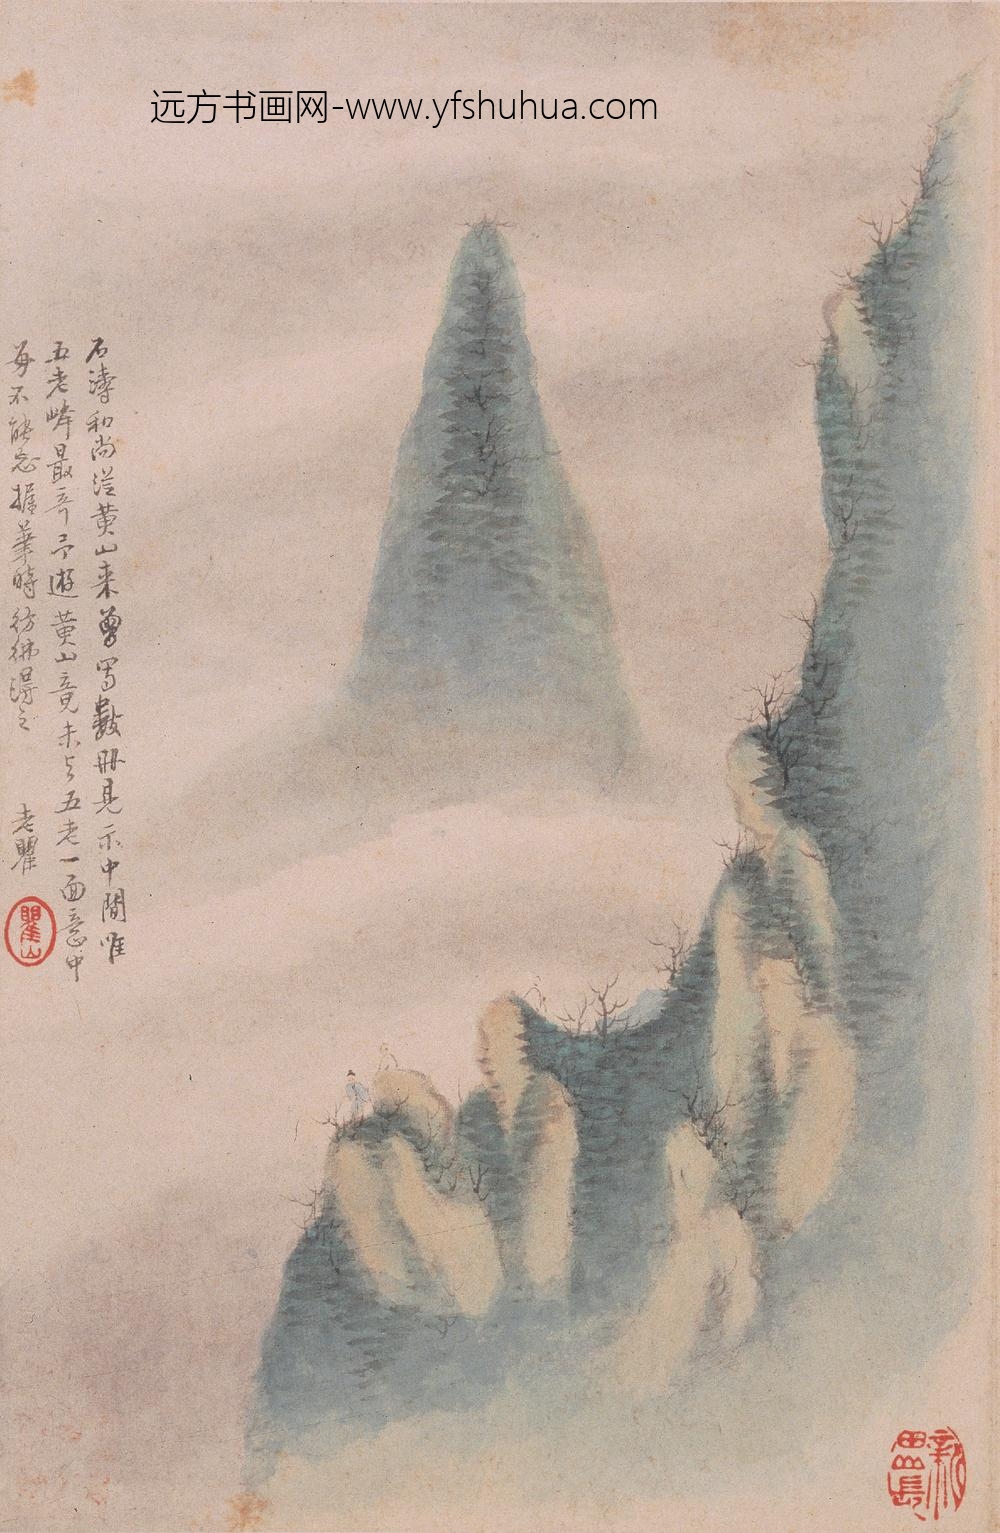 远方书画网-www.yfshuhua.com
石濤和尚從黄山来曽寫數冊見示中間唯
五老峰最奇予遊黄山竟未与五老一面意中
每不能忘握筆時彷彿得之
老瞿
瞿山